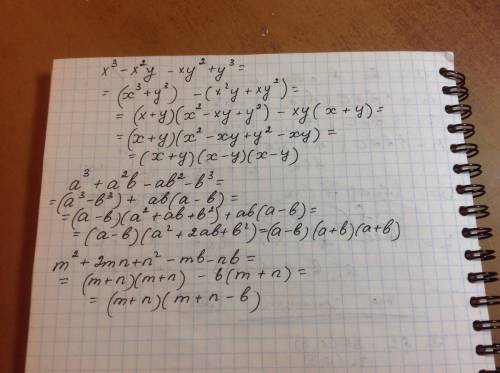 x³ - x²y - xy² + y³ =
= (x³ + y³) - (x²y + xy²) =
= (x+y)(x² - xy + y²) - xy(x+y) =
= (x+y)(x² - xy + y² - xy) =
= (x+y)(x-y)(x-y)
a³ + a²b - ab² - b³ =
= (a³ - b³) + ab(a - b) =
= (a-b)(a² + ab + b²) + ab(a-b) =
= (a-b)(a² + 2ab + b²) = (a-b)(a+b)(a+b)
m² + 2mn + n² - mb - nb =
= (m+n)(m+n) - b(m+n) =
= (m+n)(m+n-b)